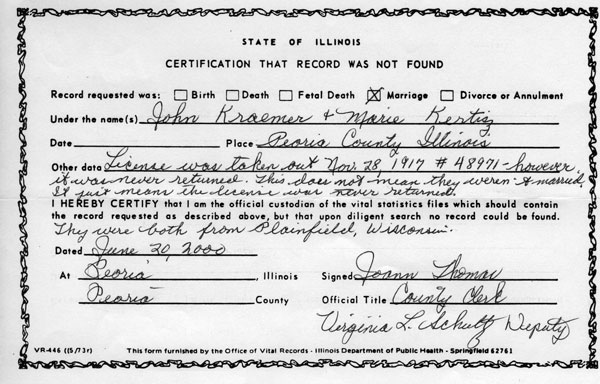 STATE OF ILLINOIS
CERTIFICATION THAT RECORD WAS NOT FOUND
Record requested was: ☐ Birth ☐ Death ☐ Fetal Death ☒ Marriage ☐ Divorce or Annulment
Under the name(s) John Kraemer & Marie Kertis
Date Place Peoria County Illinois
Other data License was taken out Nov. 28, 1917 # 48971 - however
it was never returned. This does not mean they weren't married,
It just means the license was never returned.
I HEREBY CERTIFY that I am the official custodian of the vital statistics files which should contain
the record requested as described above, but that upon diligent search no record could be found.
They were both from Plainfield, Wisconsin.
Dated June 20, 2000
At Peoria , Illinois Signed Joann Thomas
Peoria County Official Title County Clerk
Virginia L. Schultz Deputy
VR-446 ((5/73r) This form furnished by the Office of Vital Records - Illinois Department of Public Health - Springfield 62761